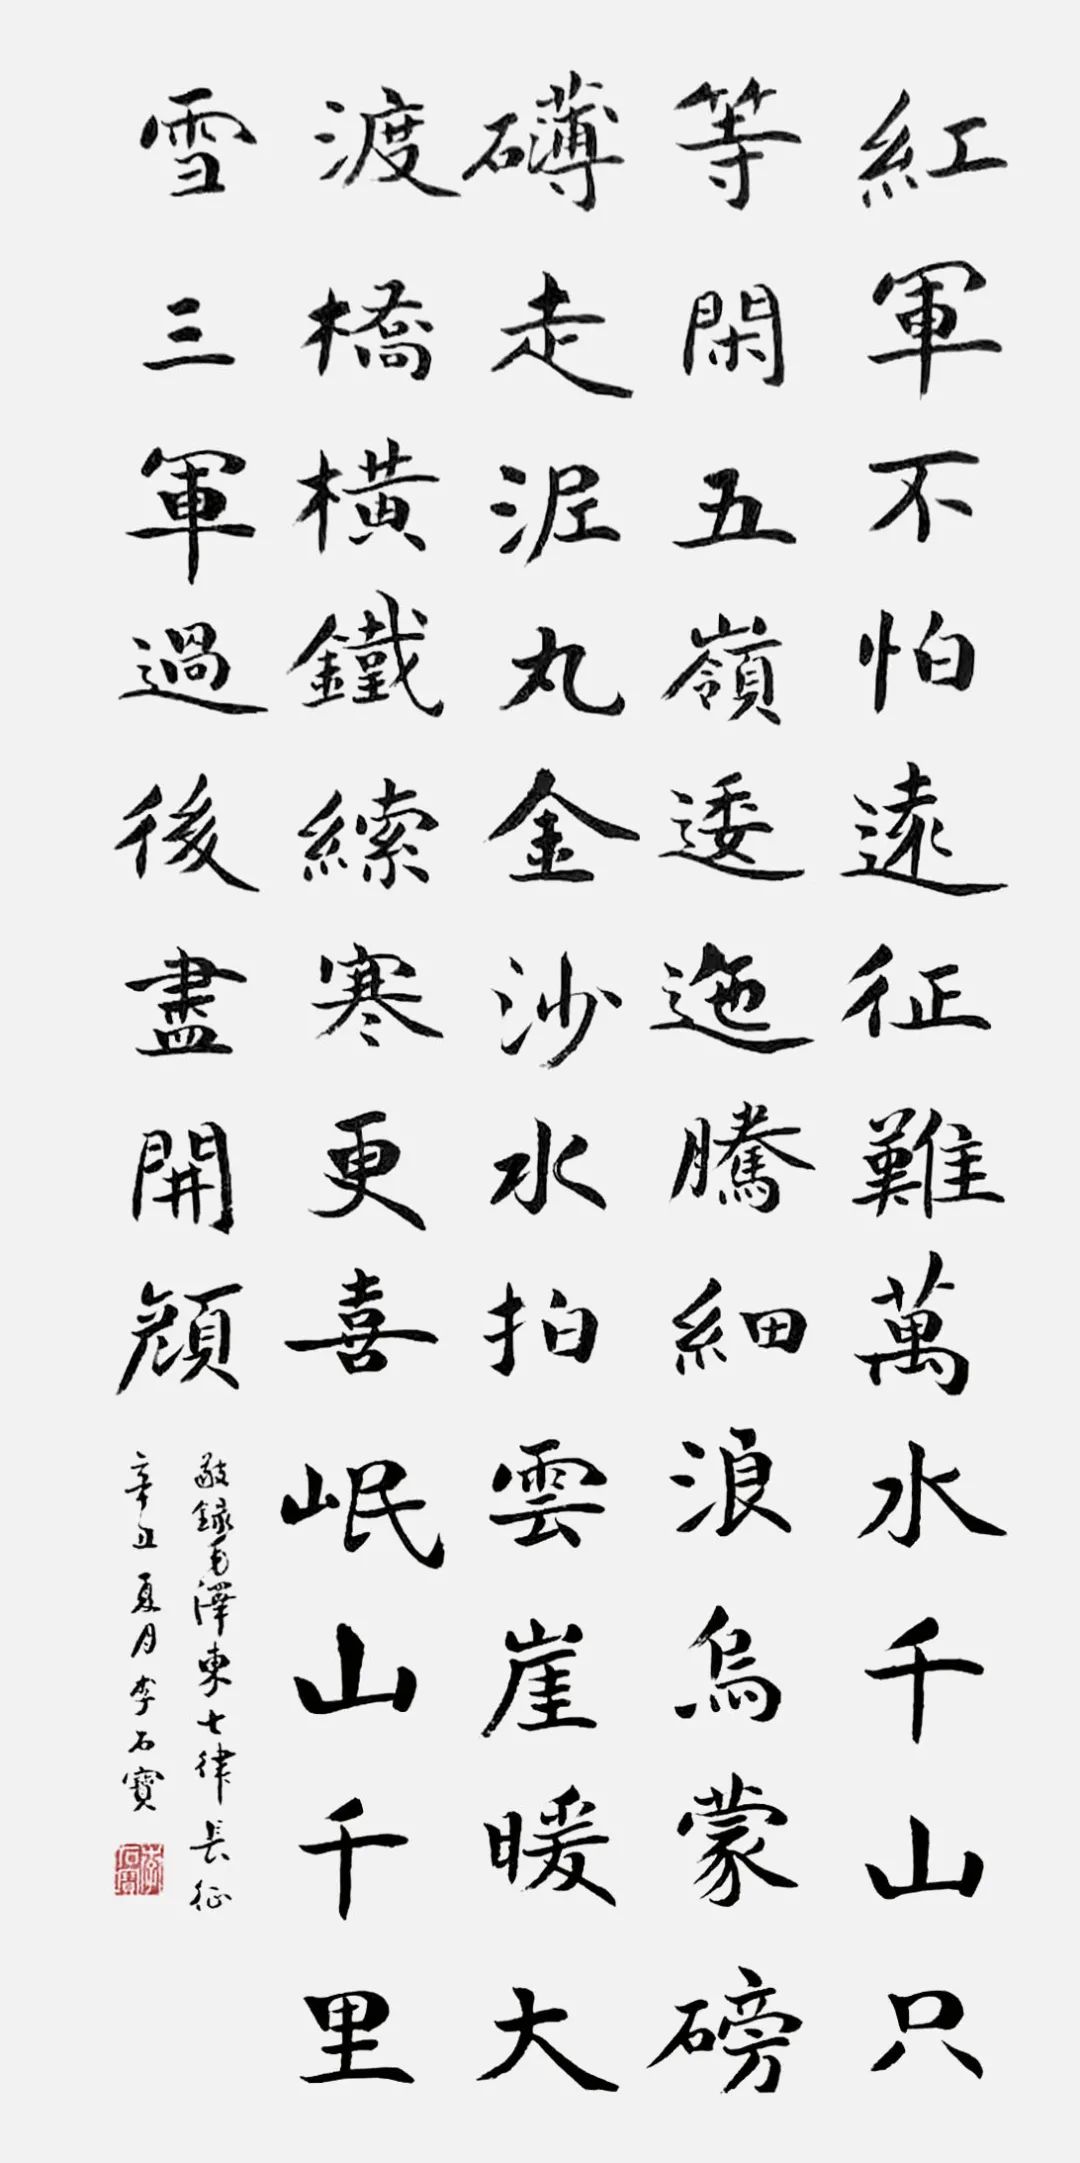 紅軍不怕遠征難萬水千山只
等閑五嶺逶迤騰細浪烏蒙磅
礴走泥丸金沙水拍雲崖暖大
渡橋橫鐵䌇寒更喜岷山千里
雪三軍過後盡開顏
敬錄毛澤東七律長征
辛丑夏月李石寶
李石寶